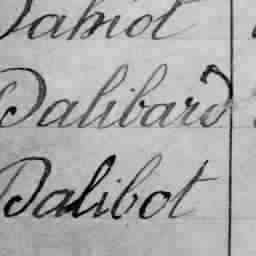 Dabriot
Dalibard
Dalibot